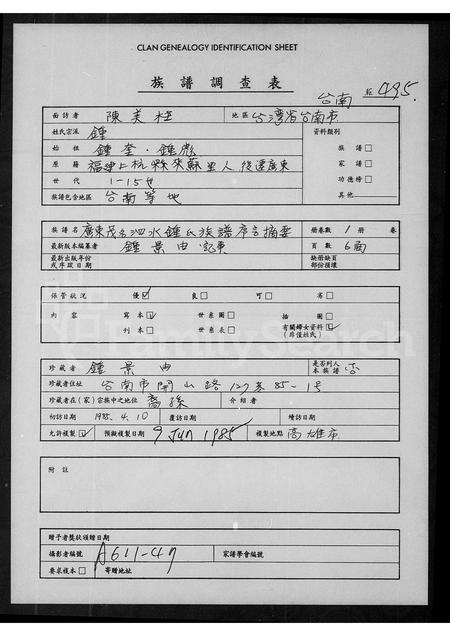 CLAN GENEALOGY IDENTIFICATION SHEET
族譜調查表
台南 495.
面訪者 陳美桂 地區 台灣省台南市
姓氏宗派 鍾 資料類別
始祖 鍾奎·鍾彪 族譜□
原籍 福建上杭縣來蘇里人 後遷廣東 家譜□
世代 1-15世 功德榜□
族譜包含地區 台南等地 其他
族譜名 廣東茂名泗水鍾氏族譜序言摘要 冊卷數 1冊 卷
最新版本編纂者 鍾景由 記東 頁數 6面
最新出版年份或序政日期 缺冊缺頁部份損壞
保管狀況 優☑ 良□ 可□ 劣□
內容 寫本☑ 世系圖□ 插圖□
刊本□ 世系表□ 有關婦女資料☑(非僅姓氏)
珍藏者 鍾景由 是否列入本族譜 否
珍藏者住址 台南市開山路127巷85-15
珍藏者在(家)宗族中之地位 裔孫 介紹者
初訪日期 1985.4.10 覆訪日期 續訪日期
允許複製☑ 預擬複製日期 9 Jun 1985 複製地點 高雄市
附註
贈予者獎狀頒贈日期
攝影者編號 A611-47 家譜學會編號
要求複本□ 寄贈地址
FamilySearch